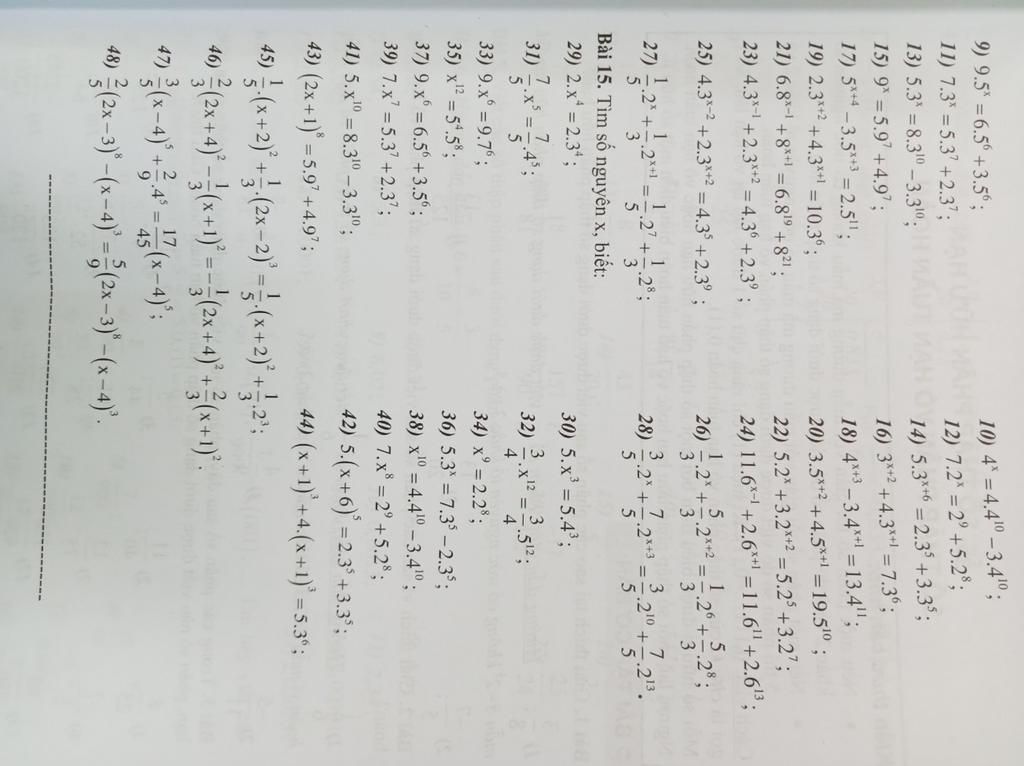 9) 9.5ˣ = 6.5⁶ + 3.5⁶; 10) 4ˣ = 4.4¹⁰ − 3.4¹⁰;
11) 7.3ˣ = 5.3⁷ + 2.3⁷; 12) 7.2ˣ = 2⁹ + 5.2⁸;
13) 5.3ˣ = 8.3¹⁰ − 3.3¹⁰; 14) 5.3ˣ⁺⁶ = 2.3⁵ + 3.3⁵;
15) 9ˣ = 5.9⁷ + 4.9⁷; 16) 3ˣ⁺² + 4.3ˣ⁺¹ = 7.3⁶;
17) 5ˣ⁺⁴ − 3.5ˣ⁺³ = 2.5¹¹; 18) 4ˣ⁺³ − 3.4ˣ⁺¹ = 13.4¹¹;
19) 2.3ˣ⁺² + 4.3ˣ⁺¹ = 10.3⁶; 20) 3.5ˣ⁺² + 4.5ˣ⁺¹ = 19.5¹⁰;
21) 6.8ˣ⁻¹ + 8ˣ⁺¹ = 6.8¹⁹ + 8²¹; 22) 5.2ˣ + 3.2ˣ⁺² = 5.2⁵ + 3.2⁷;
23) 4.3ˣ⁻¹ + 2.3ˣ⁺² = 4.3⁶ + 2.3⁹; 24) 11.6ˣ⁻¹ + 2.6ˣ⁺¹ = 11.6¹¹ + 2.6¹³;
25) 4.3ˣ⁻² + 2.3ˣ⁺² = 4.3⁵ + 2.3⁹; 26) 1/3.2ˣ + 5/3.2ˣ⁺² = 1/3.2⁶ + 5/3.2⁸;
27) 1/5.2ˣ + 1/3.2ˣ⁺¹ = 1/5.2⁷ + 1/3.2⁸; 28) 3/5.2ˣ + 7/5.2ˣ⁺³ = 3/5.2¹⁰ + 7/5.2¹³.
Bài 15. Tìm số nguyên x, biết:
29) 2.x⁴ = 2.3⁴; 30) 5.x³ = 5.4³;
31) 7/5.x⁵ = 7/5.4⁵; 32) 3/4.x¹² = 3/4.5¹²;
33) 9.x⁶ = 9.7⁶; 34) x⁹ = 2.2⁸;
35) x¹² = 5⁴.5⁸; 36) 5.3ˣ = 7.3⁵ − 2.3⁵;
37) 9.x⁶ = 6.5⁶ + 3.5⁶; 38) x¹⁰ = 4.4¹⁰ − 3.4¹⁰;
39) 7.x⁷ = 5.3⁷ + 2.3⁷; 40) 7.x⁸ = 2⁹ + 5.2⁸;
41) 5.x¹⁰ = 8.3¹⁰ − 3.3¹⁰; 42) 5.(x + 6)⁵ = 2.3⁵ + 3.3⁵;
43) (2x + 1)⁸ = 5.9⁷ + 4.9⁷; 44) (x + 1)³ + 4.(x + 1)³ = 5.3⁶;
45) 1/5.(x + 2)² + 1/3.(2x − 2)³ = 1/5.(x + 2)² + 1/3.2³;
46) 2/3(2x + 4)² − 1/3(x + 1)² = −1/3(2x + 4)² + 2/3(x + 1)²;
47) 3/5(x − 4)⁵ + 2/9.4⁵ = 17/45(x − 4)⁵;
48) 2/5(2x − 3)⁸ − (x − 4)³ = 5/9(2x − 3)⁸ − (x − 4)³.